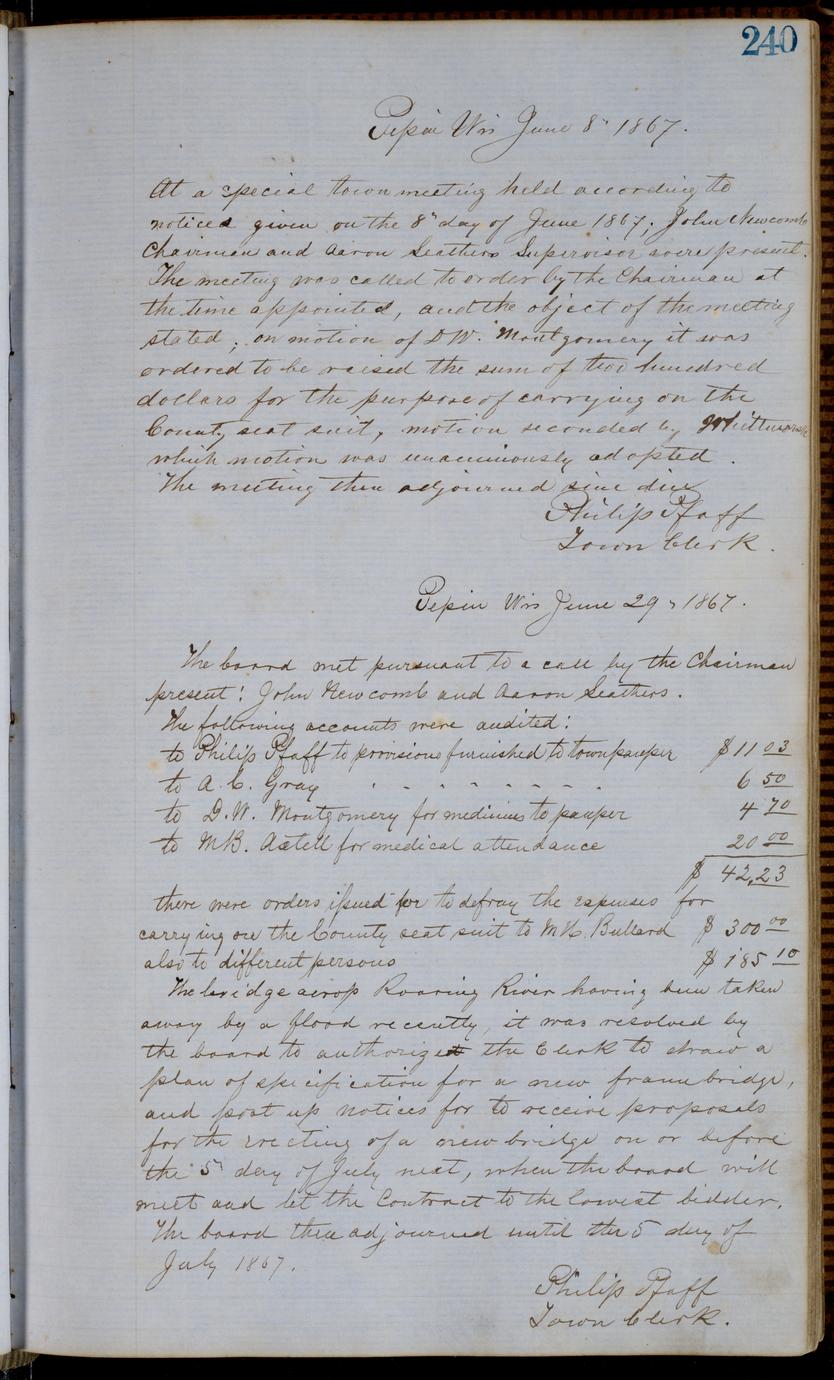 240
Pepin Wis June 8" 1867.
At a special town meeting held according to
notices given on the 8" day of June 1867; John Newcomb
Chairman and Aaron Seathers Supervisor were present.
The meeting was called to order by the Chairman at
the time appointed, and the object of the meeting
stated; on motion of D W. Montgomery it was
ordered to be raised the sum of two hundred
dollars for the purpose of carrying on the
County seat suit, motion seconded by
which motion was unanimously adopted.
The meeting then adjourned sine die
Philip Pfaff
Town Clerk.
Pepin Wis June 29" 1867.
The board met pursuant to a call by the Chairman
present: John Newcomb and Aaron Seathers.
The following accounts were audited:
to Philip Pfaff to provisions furnished to town pauper $ 11 03
to A. C. Gray " - - - - - - - 6 50
to D. W. Montgomery for medicines to pauper 4 70
to M B. Axtell for medical attendance 20 00
$ 42,23
there were orders issued for to defray the expenses for
carrying on the County seat suit to M H. Bullard $ 300 00
also to different persons $ 185 10
The bridge across Roaring River having been taken
away by a flood recently, it was resolved by
the board to authorize the Clerk to draw a
plan of specification for a new frame bridge,
and post up notices for to receive proposals
for the erecting of a new bridge on or before
the 5" day of July next, when the board will
meet and let the Contract to the lowest bidder.
The board then adjourned until the 5 day of
July 1867.
Philip Pfaff
Town Clerk.